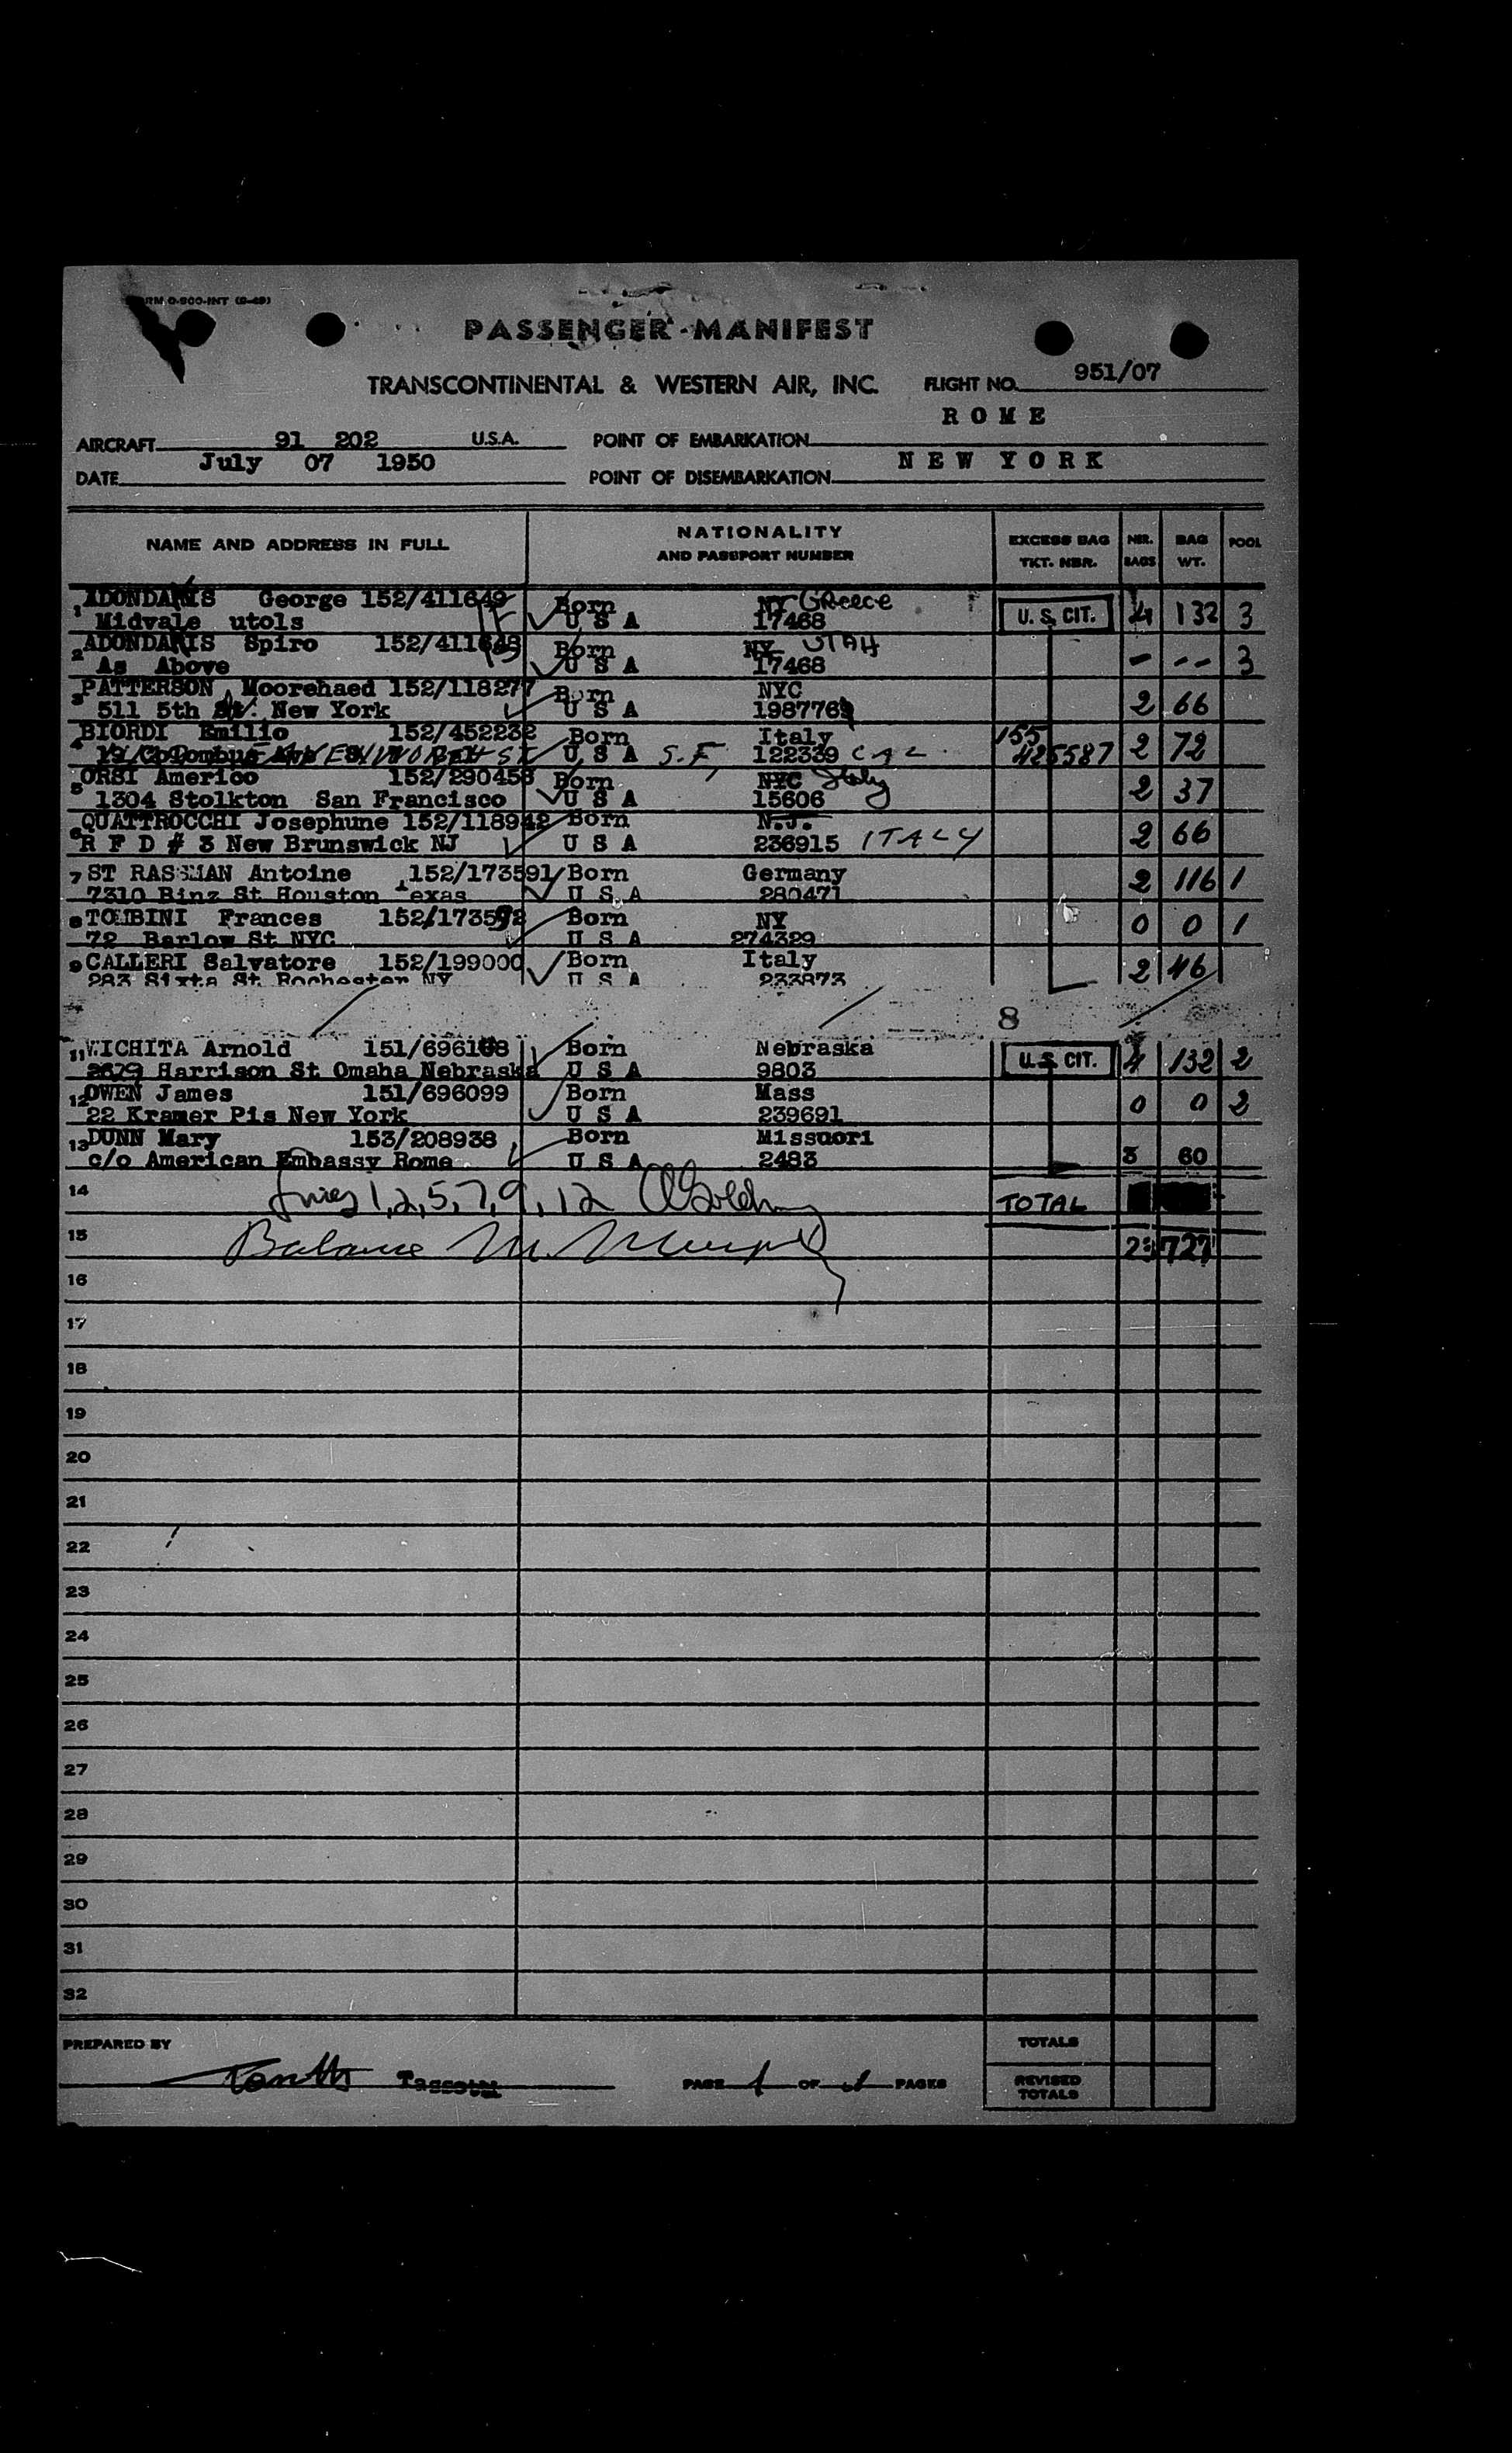 FORM 0-900-INT (9-49)
PASSENGER MANIFEST
TRANSCONTINENTAL & WESTERN AIR, INC. FLIGHT NO. 951/07
AIRCRAFT 91 202 U.S.A. POINT OF EMBARKATION ROME
DATE July 07 1950 POINT OF DISEMBARKATION NEW YORK
NAME AND ADDRESS IN FULL NATIONALITY AND PASSPORT NUMBER EXCESS BAG TKT. NBR. NBR. BAGS BAG WT. POOL
1 George 152/411649 Born NY Greece U. S. CIT. 4 132 3
Midvale utols U S A 17468
2 Spiro Born NY UTAH - -- 3
As Above U S A 17468
3 PATTERSON Moorehaed 152/118277 Born NYC 2 66
511 5th New York U S A
4 BIORDI Emilio 152/452232 Born Italy 155 2 72
U S A S.F. 122339 CAL 425587
5 ORSI Americo Born NYC Italy 2 37
1304 Stolkton San Francisco U S A 15606
6 QUATTROCCHI Josephune 152/118942 Born N.J. 2 66
R F D # 3 New Brunswick NJ U S A 236915 ITALY
7 ST RASSMAN Antoine 152/173591 Born Germany 2 116 1
7310 Binz St Houston Texas U S A 280471
8 TOMBINI Frances 152/173592 Born NY 0 0 1
72 Barlow St NYC U S A 274329
9 CALLERI Salvatore 152/199000 Born Italy 2 46
283 Sixta St Rochester NY U S A 233873
8
11 WICHITA Arnold Born Nebraska U.S. CIT. 4 132 2
2679 Harrison St Omaha Nebraska U S A 9803
12 OWEN James 151/696099 Born Mass 0 0 2
22 Kramer Pis New York U S A 239691
13 DUNN Mary 153/208938 Born Missuori 3 60
c/o American Embassy Rome U S A 2483
14 1,2,5,7,9,12 TOTAL
15 Balance M. 727
16
17
18
19
20
21
22
23
24
25
26
27
28
29
30
31
32
PREPARED BY TOTALS
PAGE 1 OF 1 PAGES REVISED TOTALS